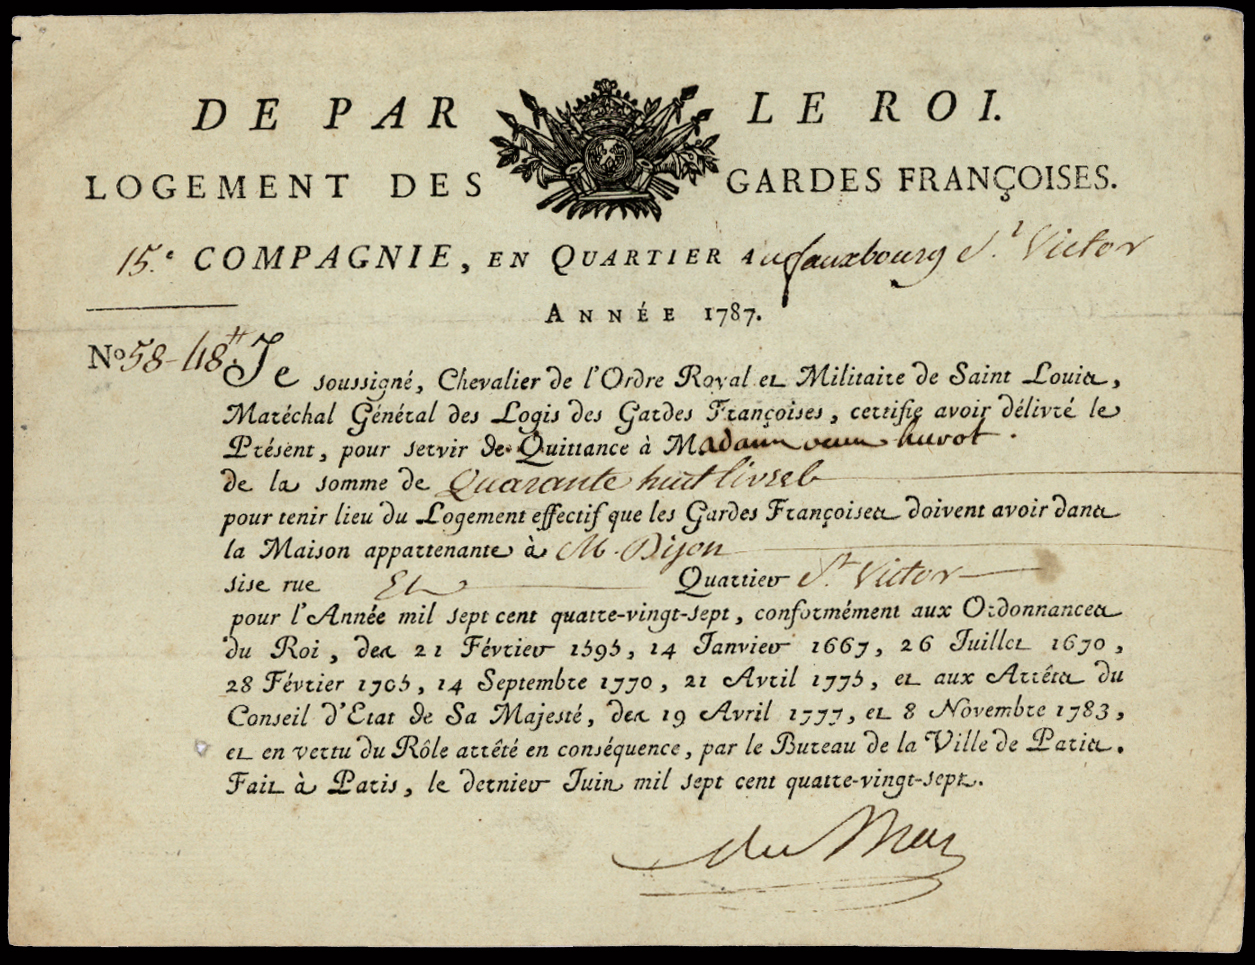 DE PAR LE ROI.
LOGEMENT DES GARDES FRANÇOISES.
15.e COMPAGNIE, EN QUARTIER Au fauxbourg St. Victor
ANNÉE 1787.
No 58 - 48 ₶ Je soussigné, Chevalier de l'Ordre Royal et Militaire de Saint Louis,
Maréchal Général des Logis des Gardes Françoises, certifie avoir délivré le
Présent, pour servir de Quittance à Madame veuve huvot.
de la somme de Quarante huit livres
pour tenir lieu du Logement effectif que les Gardes Françoises doivent avoir dans
la Maison appartenante à M. Dijon
sise rue Quartier St. Victor
pour l'Année mil sept cent quatre-vingt-sept, conformément aux Ordonnances
du Roi, des 21 Février 1595, 14 Janvier 1667, 26 Juillet 1670,
28 Février 1705, 14 Septembre 1770, 21 Avril 1775, et aux Arrêts du
Conseil d'Etat de Sa Majesté, des 19 Avril 1777, et 8 Novembre 1783,
et en vertu du Rôle arrêté en conséquence, par le Bureau de la Ville de Paris.
Fait à Paris, le dernier Juin mil sept cent quatre-vingt-sept.